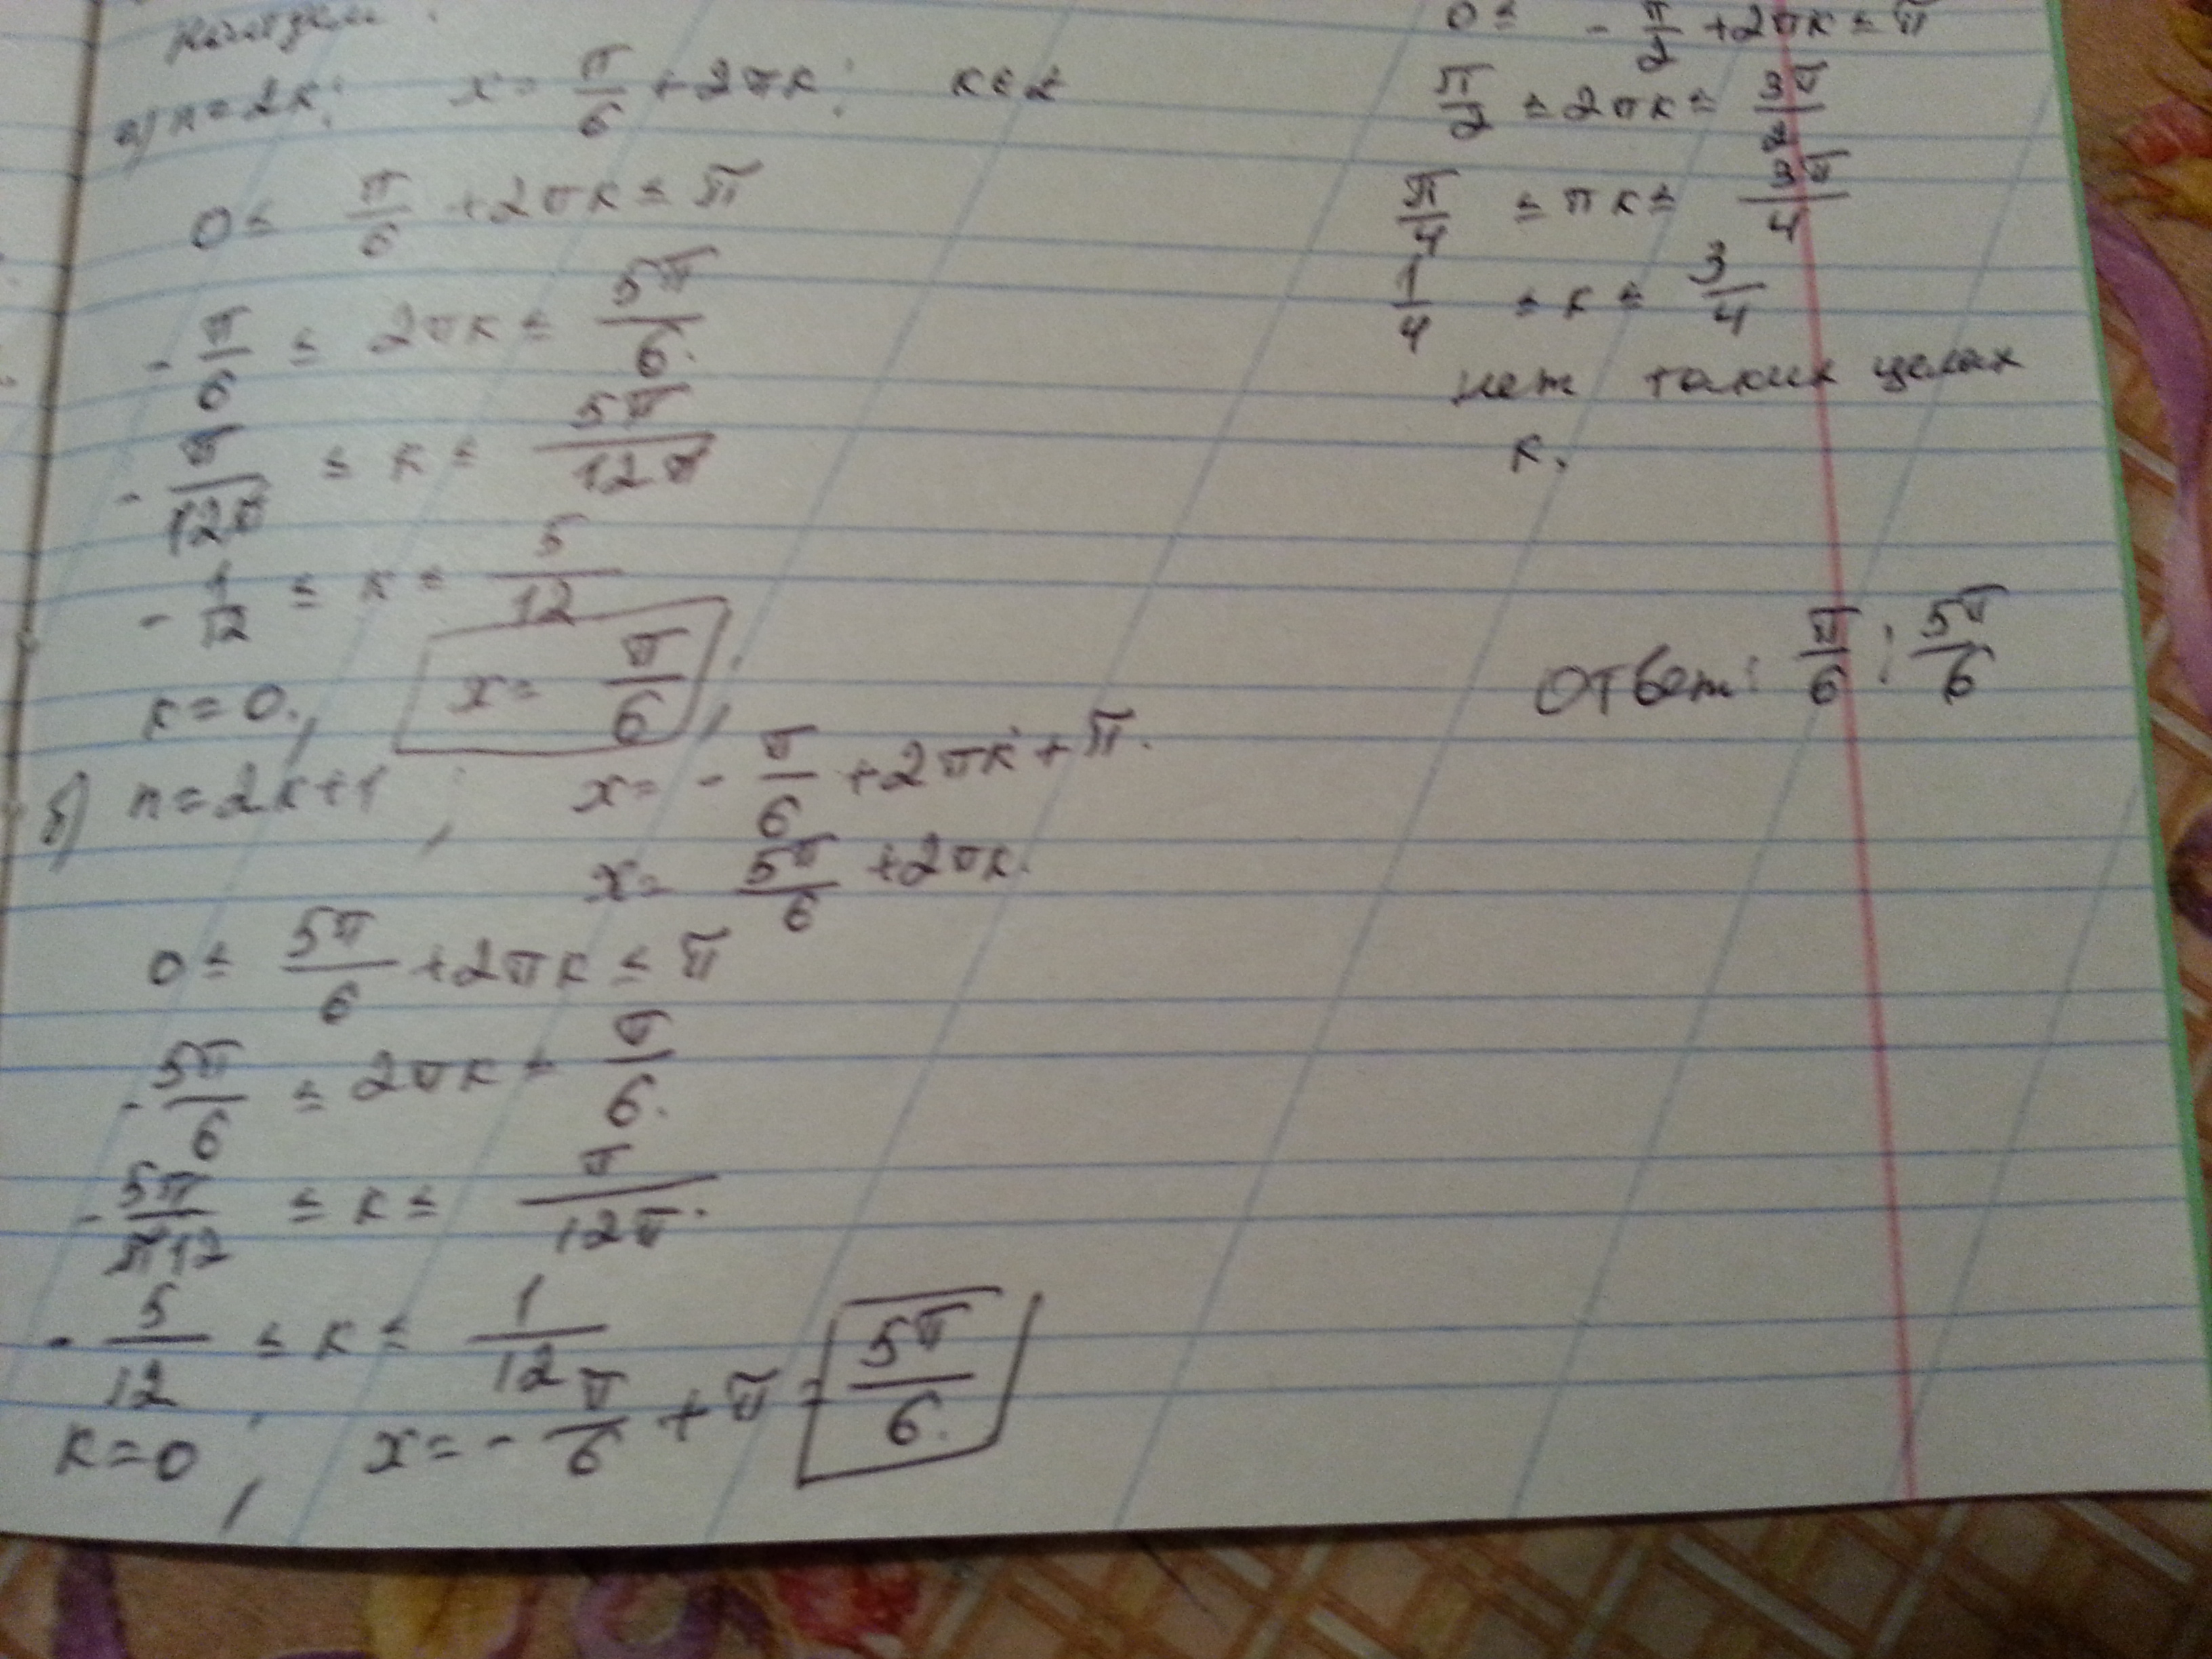 а) n=2к; x= π/6 +2πк; к∈z
0≤ π/6 +2πк≤ π
- π/6 ≤ 2πк≤ 5π/6.
- π/12π ≤ к≤ 5π/12π
- 1/12 ≤ к≤ 5/12
к=0., x= π/6;
б) n=2к+1, x= - π/6 +2πк+π.
x= 5π/6 +2πк.
0≤ 5π/6 +2πк≤ π
- 5π/6 ≤ 2πк≤ π/6.
- 5π/π12 ≤ к≤ π/12π.
- 5/12 ≤ к≤ 1/12
к=0, x=- π/6 +π= 5π/6.
0≤ - π/2 +2πк≤ π
π/2 ≤2πк≤ 3π/2
π/4 ≤ πк≤ 3π/4
1/4 ≤ к≤ 3/4
нет таких целых
к.
Ответ: π/6; 5π/6